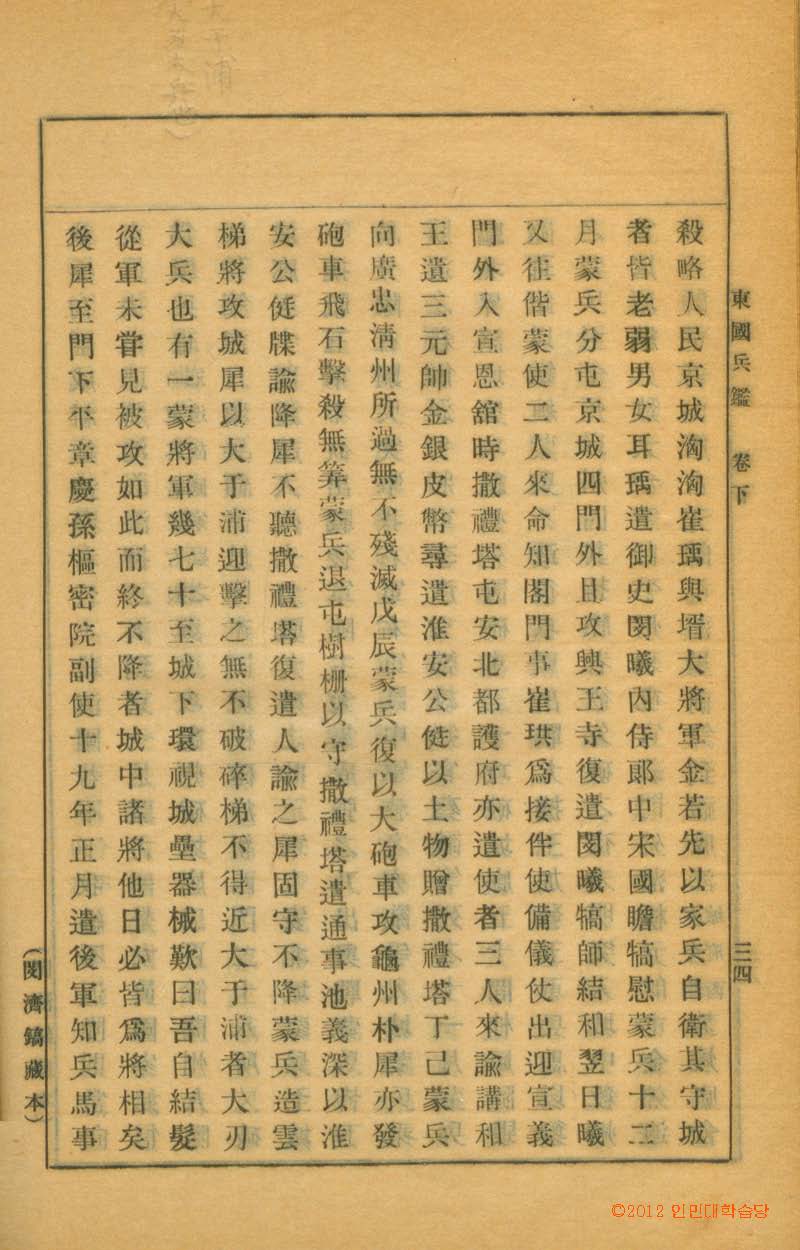 東國兵鑑 卷下 三四
殺略人民京城洶洶崔瑀與壻大將軍金若先以家兵自衛其守城
者皆老弱男女耳瑀遣御史閔曦內侍郞中宋國瞻犒慰蒙兵十二
月蒙兵分屯京城四門外且攻興王寺復遣閔曦犒師結和翌日曦
又往偕蒙使二人來命知閣門事崔珙爲接伴使備儀仗出迎宣義
門外入宣恩舘時撒禮塔屯安北都護府亦遣使者三人來諭講和
王遣三元帥金銀皮幣尋遣淮安公侹以土物贈撒禮塔丁己蒙兵
向廣忠淸州所過無不殘滅戊辰蒙兵復以大砲車攻龜州朴犀亦發
砲車飛石擊殺無筭蒙兵退屯樹柵以守撒禮塔遣通事池義深以淮
安公侹牒諭降犀不聽撒禮塔復遣人諭之犀固守不降蒙兵造雲
梯將攻城犀以大于浦迎擊之無不破碎梯不得近大于浦者大刃
大兵也有一蒙將軍幾七十至城下環視城壘器械歎曰吾自結髮
從軍未甞見被攻如此而終不降者城中諸將他日必皆爲將相矣
後犀至門下平章慶孫樞密院副使十九年正月遣後軍知兵馬事
(閔濟鎬藏本)
©2012 인민대학습당